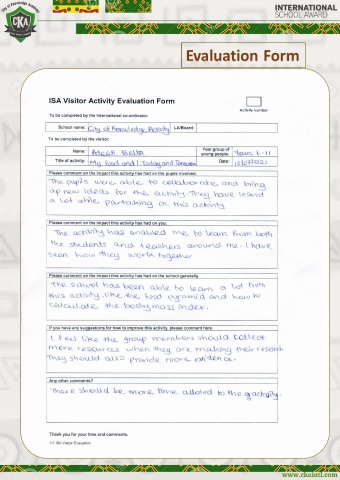 City of Knowledge Academy
CKA
INTERNATIONAL
SCHOOL AWARD
Evaluation Form
ISA Visitor Activity Evaluation Form
Activity number
To be completed by the international co-ordinator:
School name: City of Knowledge Academy LA/Board:
To be completed by the visitor:
Name: Bello
Year group of young people: Years 7-11
Title of activity: My food and I Today and Tomorrow
Date: 10/07/2021
Please comment on the impact this activity has had on the pupils involved.
The pupils were able to collaborate and bring
up new ideas for the activity. They have learnt
a lot while partaking in this activity
Please comment on the impact this activity has had on you.
The activity has enabled me to learn from both
the students and teachers around me. I have
seen how they work together
Please comment on the impact this activity has had on the school generally.
The school has been able to learn a lot from
this activity. Like the food pyramid and how to
calculate the body mass index.
If you have any suggestions for how to improve this activity, please comment here.
I feel like the group members should collect
more resources when they are making their research
They should also provide more evidence.
Any other comments?
There should be more time alloted to the activity.
Thank you for your time and comments.
ISA Visitor Evaluation
www.ckaintl.com